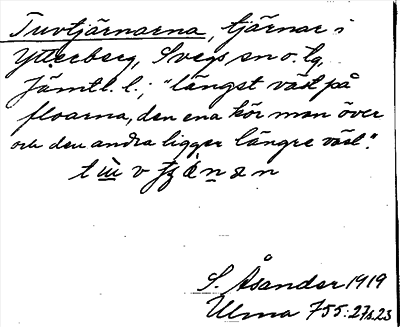 Tuvtjärnarna, tjärnar i
Ytterberg, Svegs sn o. tg,
Jämtl. l.; "längst väst på
floarna, den ena kör man över
och den andra ligger längre väst".
S. Åsander 1919
Ulma 755:27 s. 23